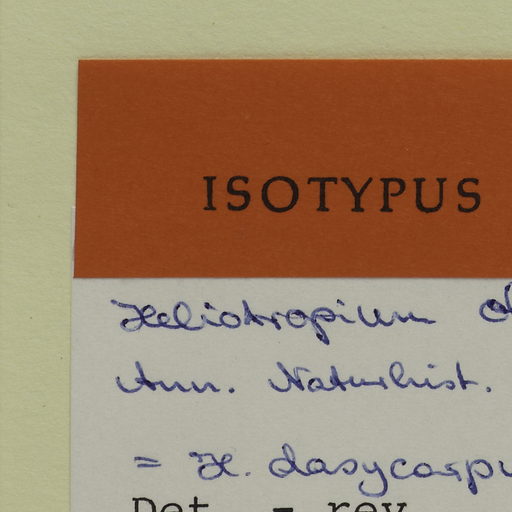 ISOTYPUS
Heliotropium
Ann. Naturhist.
= H. dasycarpu
Det. - rev.